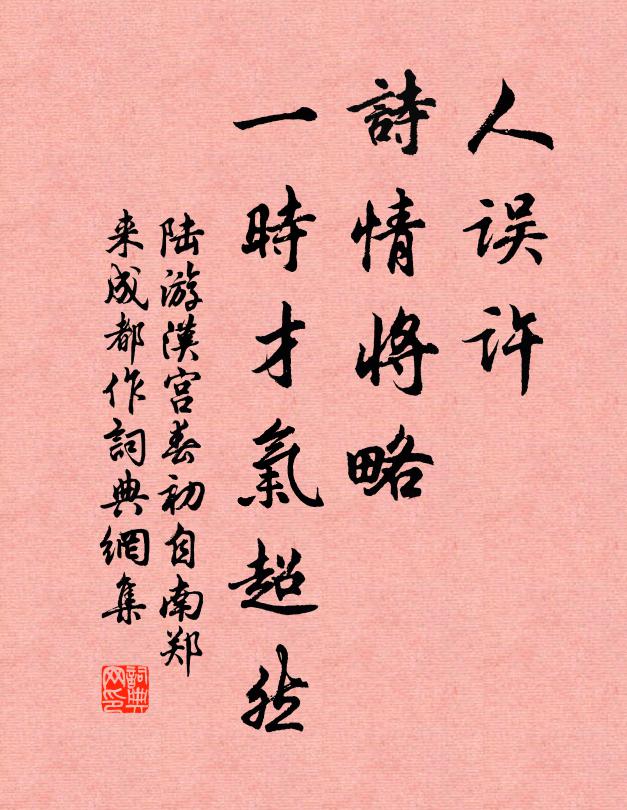 人误许
詩情将略
一時才氣超然
陆游漢宫春初自南郑
来成都作詞典網集
詞典
网印